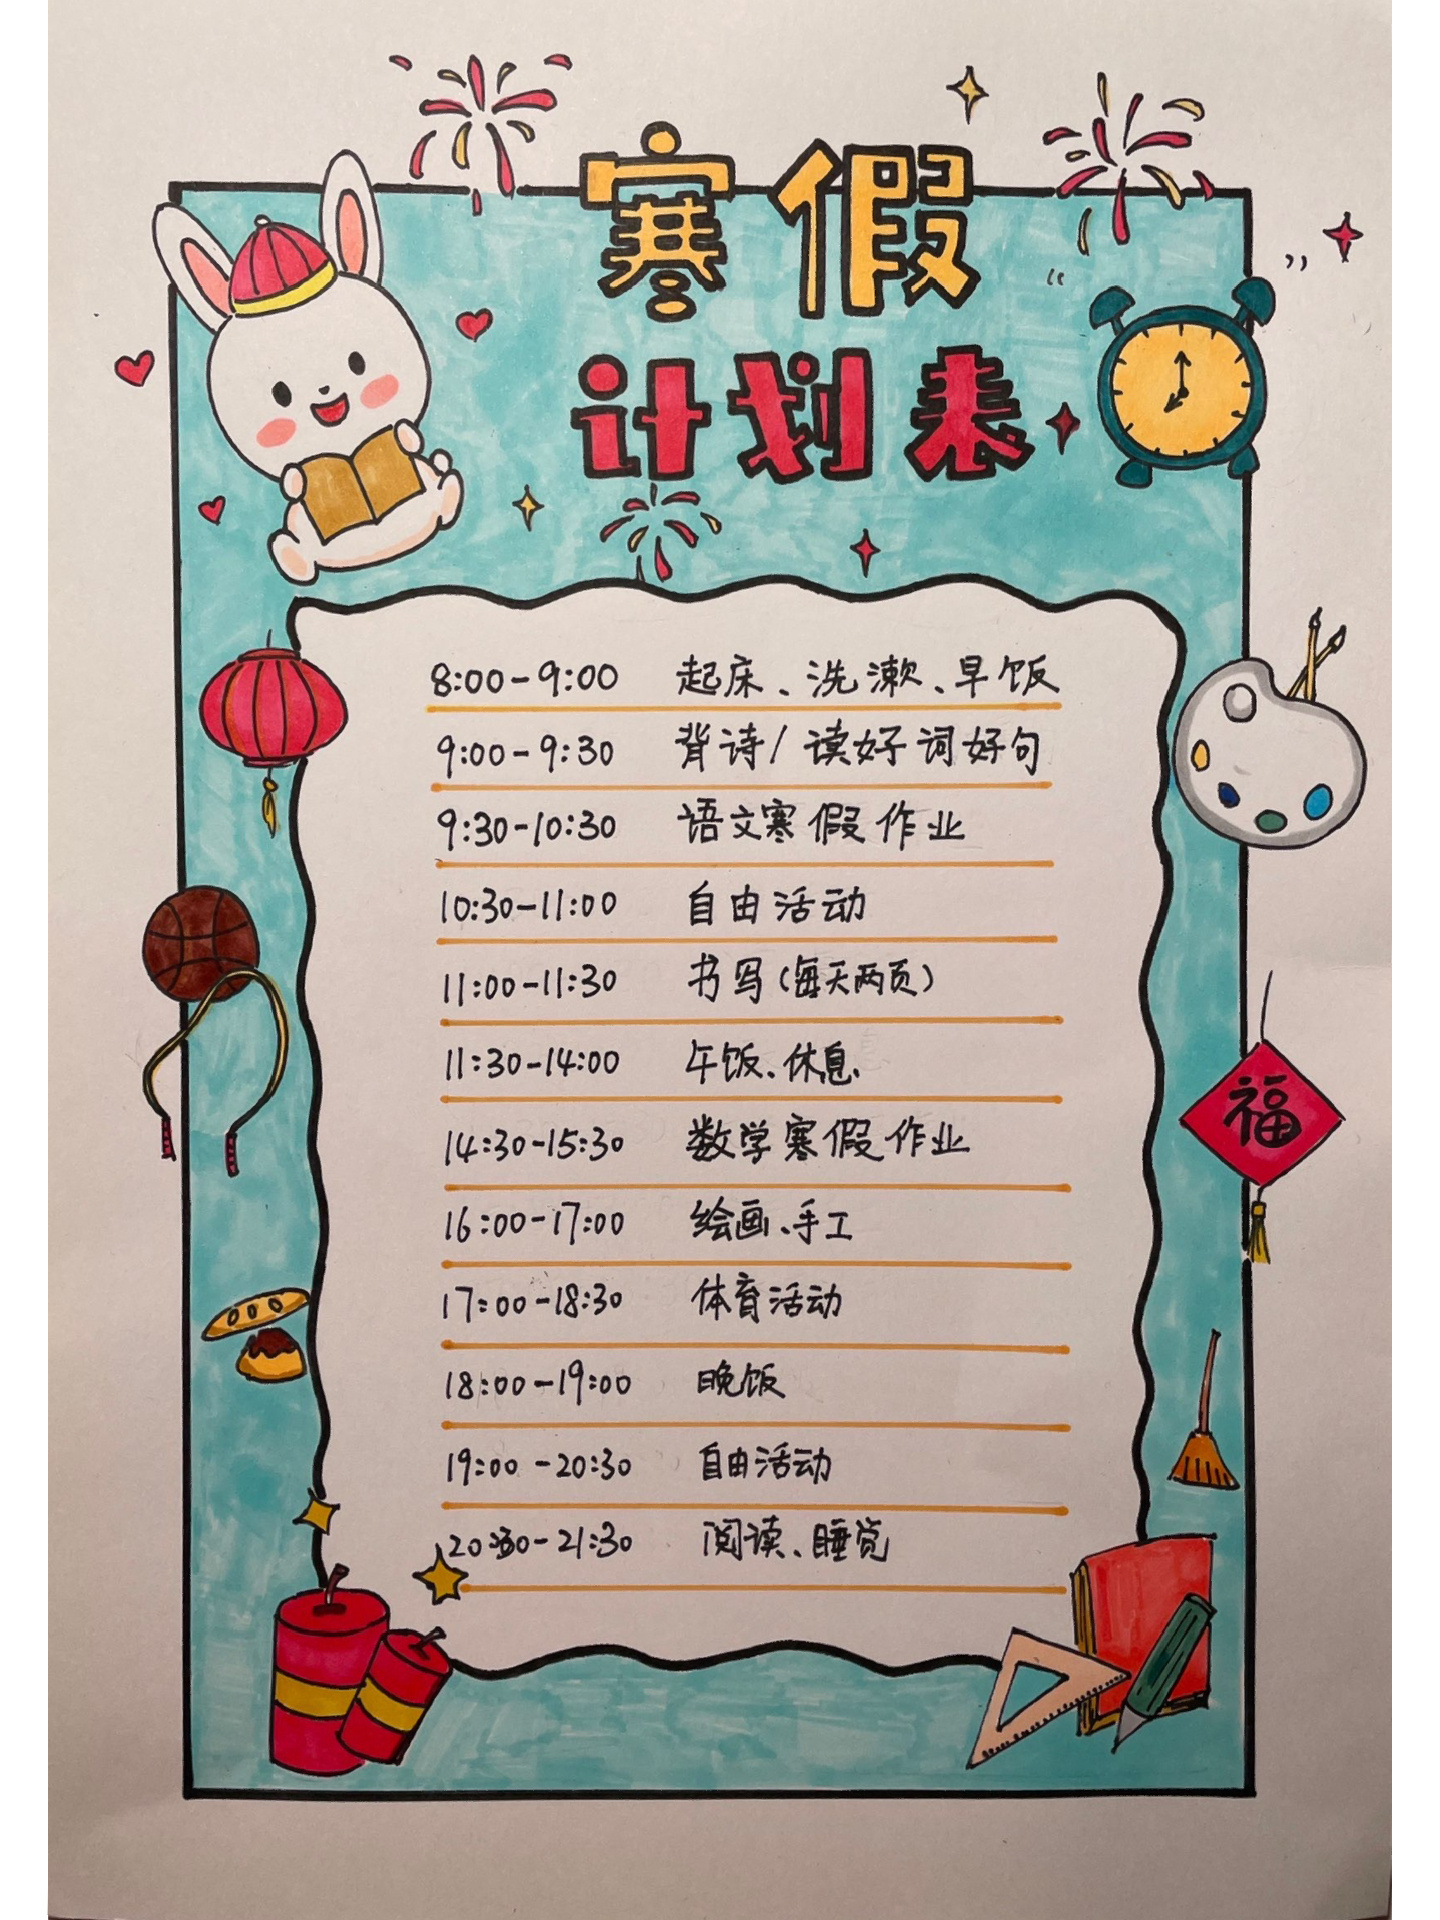 寒假
计划表
8:00-9:00 起床、洗漱、早饭
9:00-9:30 背诗/读好词好句
9:30-10:30 语文寒假作业
10:30-11:00 自由活动
11:00-11:30 书写(每天两页)
11:30-14:00 午饭、休息
14:30-15:30 数学寒假作业
16:00-17:00 绘画、手工
17:00-18:30 体育活动
18:00-19:00 晚饭
19:00-20:30 自由活动
20:30-21:30 阅读、睡觉
福